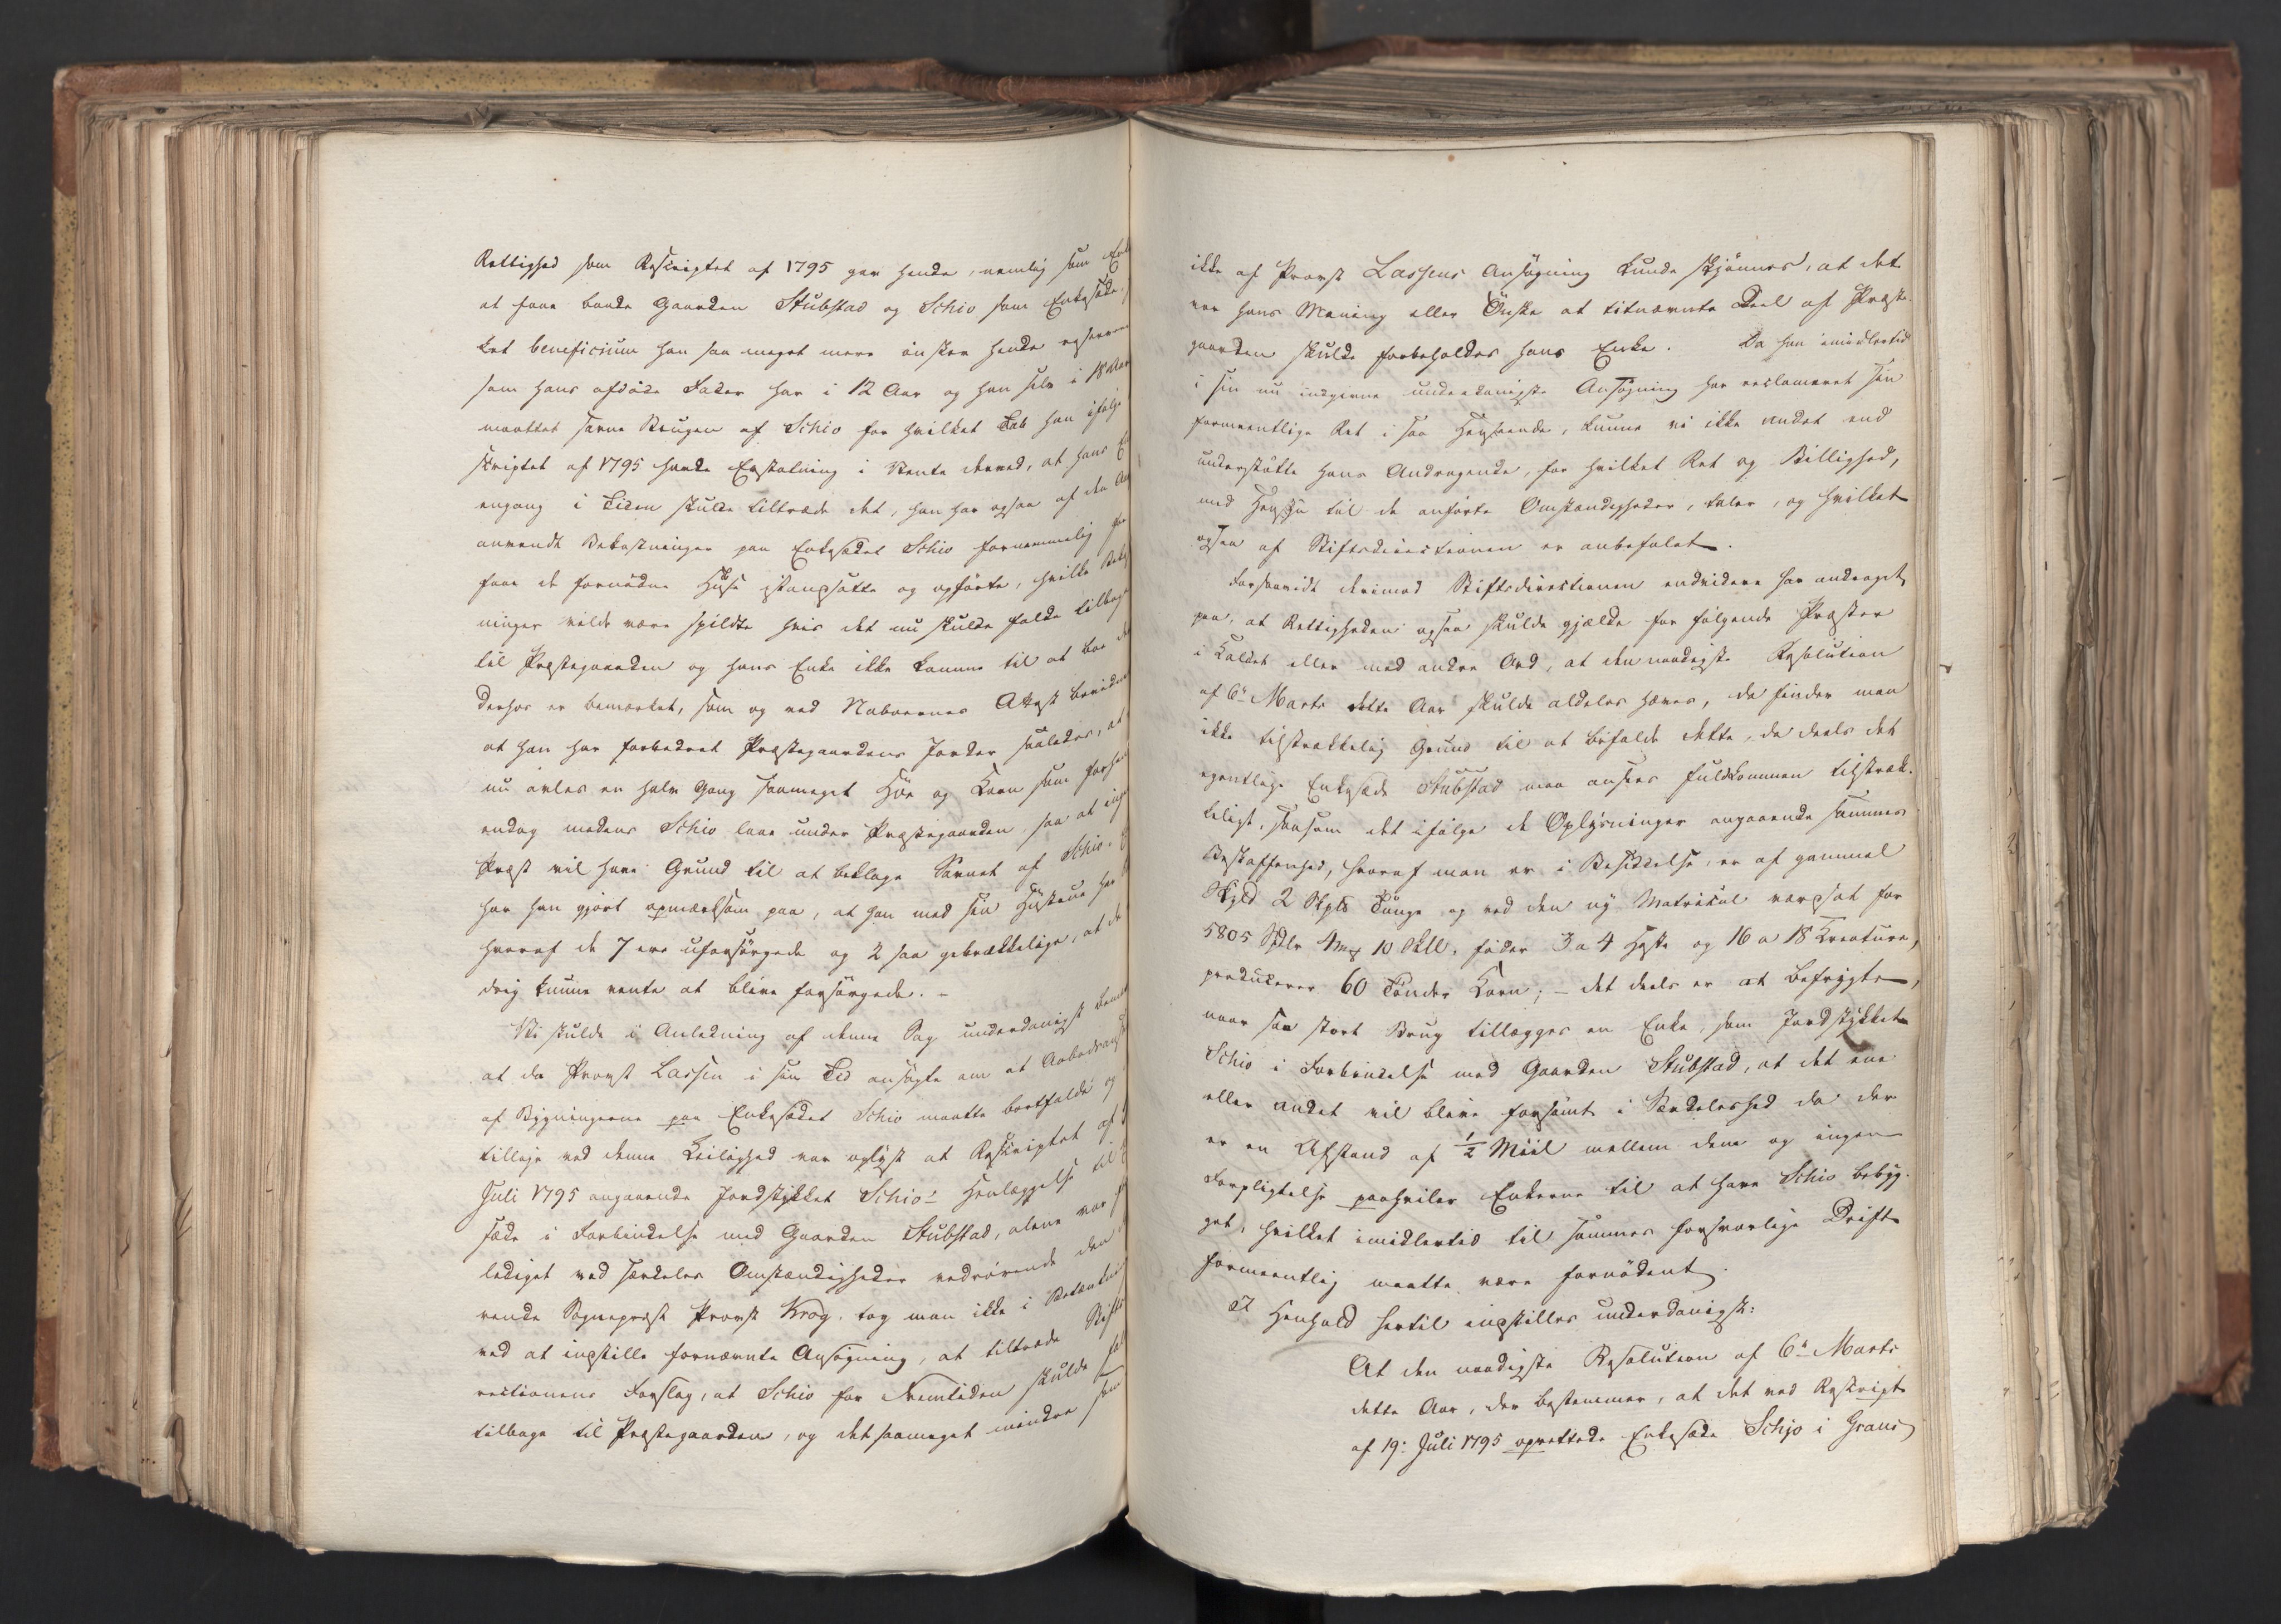 Rettighed som Rescriptet af 1795 gav hende, nemlig som
at faae baade Gaarden Stubstad og Schio som Enkesæde,
ket beneficium han saa meget mere önsker hende
som hans afdöde Fader har i 12 Aar og han selv i 18 Aar
maattet savne Brugen af Schio for hvilket Tab han ifølge
scriptet af 1795 havde Erstatning i Vente derved, at hans
engang i Tiden skulde tiltræde det, han har ogsaa af den
anvendt Bekostninger paa Enkesædet Schio fornemmelig
faae de fornödne Huse istandsatte og opförte, hvilke
ninger vilde være spildte hvis det nu skulde falde tilbage
til Præstegaarden og hans Enke ikke komme til at boe
derhos er bemærket, som og ved Naboernes Attest
at han har forbedret Præstegaardens Jorder saaledes, at
nu avles en halv Gang saameget Höe og Korn som
endog medens Schio laae under Præstegaarden, saa at
Præst vil have Grund til at beklage Savnet af Schio.
har han gjort opmærksom paa, at han med sin Hustrue har
hvoraf de 7 ere uforsörgede og 2 saa gebrækkelige, at de
drig kunne vente at blive forsörgede. -
Vi skulde i Anledning af denne Sag underdanigst
at da Provst Lassen i sin Tid ansögte om at Aabodsansvar
af Bygningerne paa Enkesædet Schio maatte bortfalde og
tillige ved denne Leilighed var oplyst at Rescriptet af
Juli 1795 angaaende Jordstykket Schio's Henlæggelse til
sæde i Forbindelse med Gaarden Stubstad, alene var
lediget ved særdeles Omstændigheder vedrörende den
rende Sognepræst Provst Krog, tog man ikke i Betænkning
ved at indstille fornævnte Ansögning, at tiltræde Stifts
rectionens Forslag, at Schio for Fremtiden skulde
tilbage til Præstegaarden, og det saameget mindre som
ikke af Provst Lassens Ansögning kunde skjönnes, at det
var hans Mening eller Önske at titnævnte Deel af Præste-
gaarden skulde forbeholdes hans Enke. Da han imidlertid
i sin nu indgivne underdanigste Ansögning har reclameret sin
formeentlige Ret i saa Henseende, kunne vi ikke andet end
understötte hans Andragende, for hvilket Ret og Billighed,
med Hensyn til de anförte Omstændigheder, taler, og hvilket
ogsaa af Stiftsdirectionen er anbefalet.
Forsaavidt derimod Stiftsdirectionen endvidere har andraget
paa, at Rettigheden ogsaa skulde gjælde for fölgende Præster
i Kaldet eller med andre Ord, at den naadigste Resolution
af 6te Marts dette Aar skulde aldeles hæves, da finder man
ikke tilstrækkelig Grund til at bifalde dette, da deels det
egentlige Enkesæde Stubstad maa ansees fuldkommen tilstræk-
keligt, saasom det ifölge de Oplysninger angaaende sammes
Beskaffenhed, hvoraf man er i Besiddelse, er af gammel
Skyld 2 Skpd Tunge og ved den ny Matricul værdsat for
5805 Spdlr 4 mrk 10 Skll, föder 3 a 4 Heste og 16 a 18 Kreature,
producerer 60 Tönder Korn; - det deels er at befrygte,
naar saa stort Brug tillægges en Enke, som Jordstykket
Schio i Forbindelse med Gaarden Stubstad, at det ene
eller andet vil blive forsömt i Særdeleshed da der
er en Afstand af ½ Miil mellem dem og ingen
Forpligtelse paahviler Enkerne til at have Schio bebyg-
get, hvilket imidlertid til sammes forsvarlige Drift
formeentlig maatte være fornödent.
I Henhold hertil indstilles underdanigst:
At den naadigste Resolution af 6te Marts
dette Aar, der bestemmer, at det ved Rescript
af 19: Juli 1795 oprettede Enkesæde Schjo i Grans